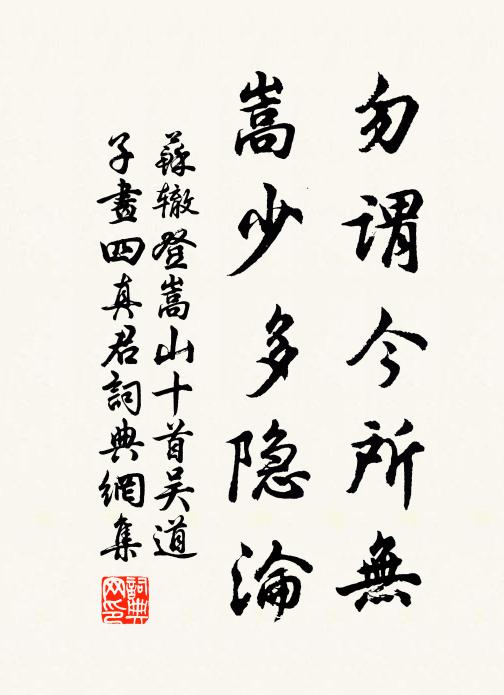 勿谓今所無
嵩少多隐淪
蘇辙登嵩山十首吴道
子畫四真君詞典網集
詞典
网印